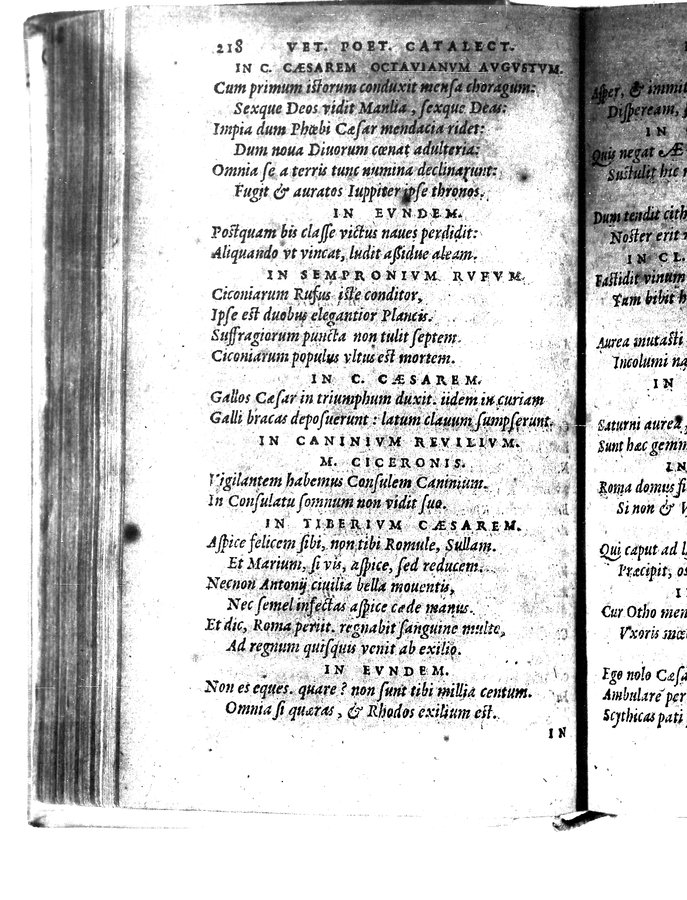 218 VET. POET. CATALECT.
IN C. CÆSAREM OCTAVIANVM AVGVSTVM.
Cum primum istorum conduxit mensa choragum:
Sexque Deos vidit Manlia, sexque Deas:
Impia dum Phœbi Cæsar mendacia ridet:
Dum noua Diuorum cœnat adulteria:
Omnia se a terris tunc numina declinarunt:
Fugit & auratos Iuppiter ipse thronos.
IN EVNDEM.
Postquam bis classe victus naues perdidit:
Aliquando vt vincat, ludit assidue aleam.
IN SEMPRONIVM RVFVM.
Ciconiarum Rufus iste conditor,
Ipse est duobus elegantior Plancis.
Suffragiorum puncta non tulit septem.
Ciconiarum populus vltus est mortem.
IN C. CÆSAREM.
Gallos Cæsar in triumphum duxit. iidem in curiam
Galli bracas deposuerunt: latum clauum sumpserunt.
IN CANINIVM REVILIVM.
M. CICERONIS.
Vigilantem habemus Consulem Caninium.
In Consulatu somnum non vidit suo.
IN TIBERIVM CÆSAREM.
Aspice felicem sibi, non tibi Romule, Sullam.
Et Marium, si vis, aspice, sed reducem.
Necnon Antonij ciuilia bella mouentis,
Nec semel infectas aspice cæde manus.
Et dic, Roma periit. regnabit sanguine multo,
Ad regnum quisquis venit ab exilio.
IN EVNDEM.
Non es eques. quare? non sunt tibi millia centum.
Omnia si quæras, & Rhodos exilium est.
IN
Asper, & immit
Dispeream, s
IN
Quis negat Æ
Sustulit hic
Dum tendit cith
Noster erit
IN CL.
Fastidit vinum
Tam bibit h
Aurea mutasti
Incolumi na
IN
Saturni aurea
Sunt hæc gemm
IN
Roma domus fi
Si non & V
Qui caput ad l
Præcipit, os
I
Cur Otho men
Vxoris mœ
Ego nolo Cæsa
Ambulare per
Scythicas pati